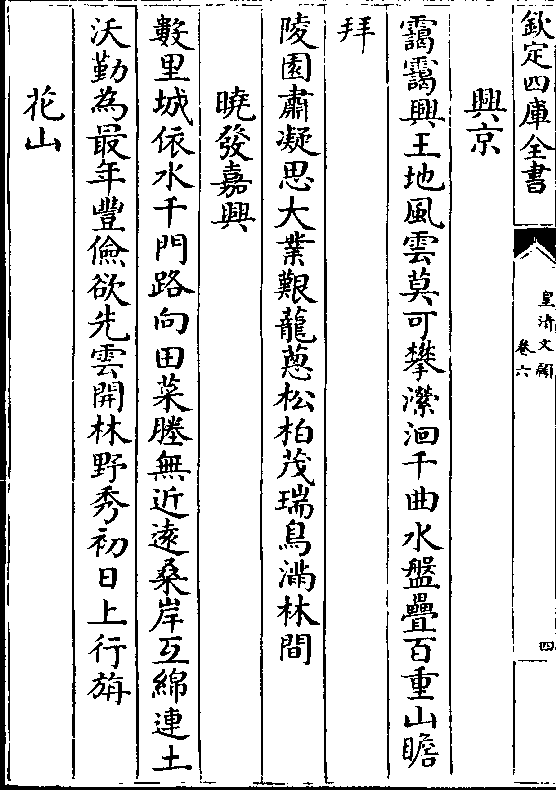 欽定四庫全書
皇清文頴
卷六
四
興京
靄靄興王地風雲莫可攀瀠洄千曲水盤疊百重山瞻
拜
陵園肅凝思大業艱龍蔥松柏茂瑞鳥滿林間
曉發嘉興
數里城依水千門路向田菜塍無近遠桑岸互綿連土
沃勤為最年豐儉欲先雲開林野秀初日上行旃
花山